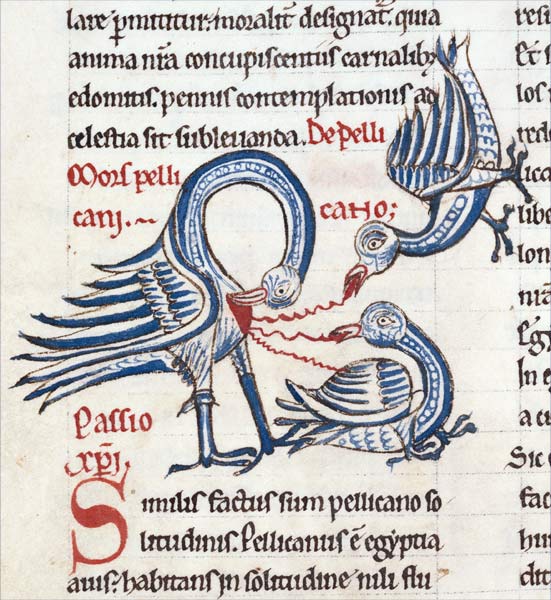 lare p̄mittitur: moralit̄ designat̄. quia
anima nr̄a concupiscentiis carnalib;
edomitis. pennis contemplationis ad
celestia sit subleuanda. De pelli
Mors pelli
cano;
cani.
Passio
xp̄i
Similis factus sum pellicano so
litudinis. Pellicanus ē egyptia
auis: habitans in solitudine nili flu
resi
Et
los
redi
ica
libe
lon
nr̄a
Egy
In e
a cu
Sic
fac
hu